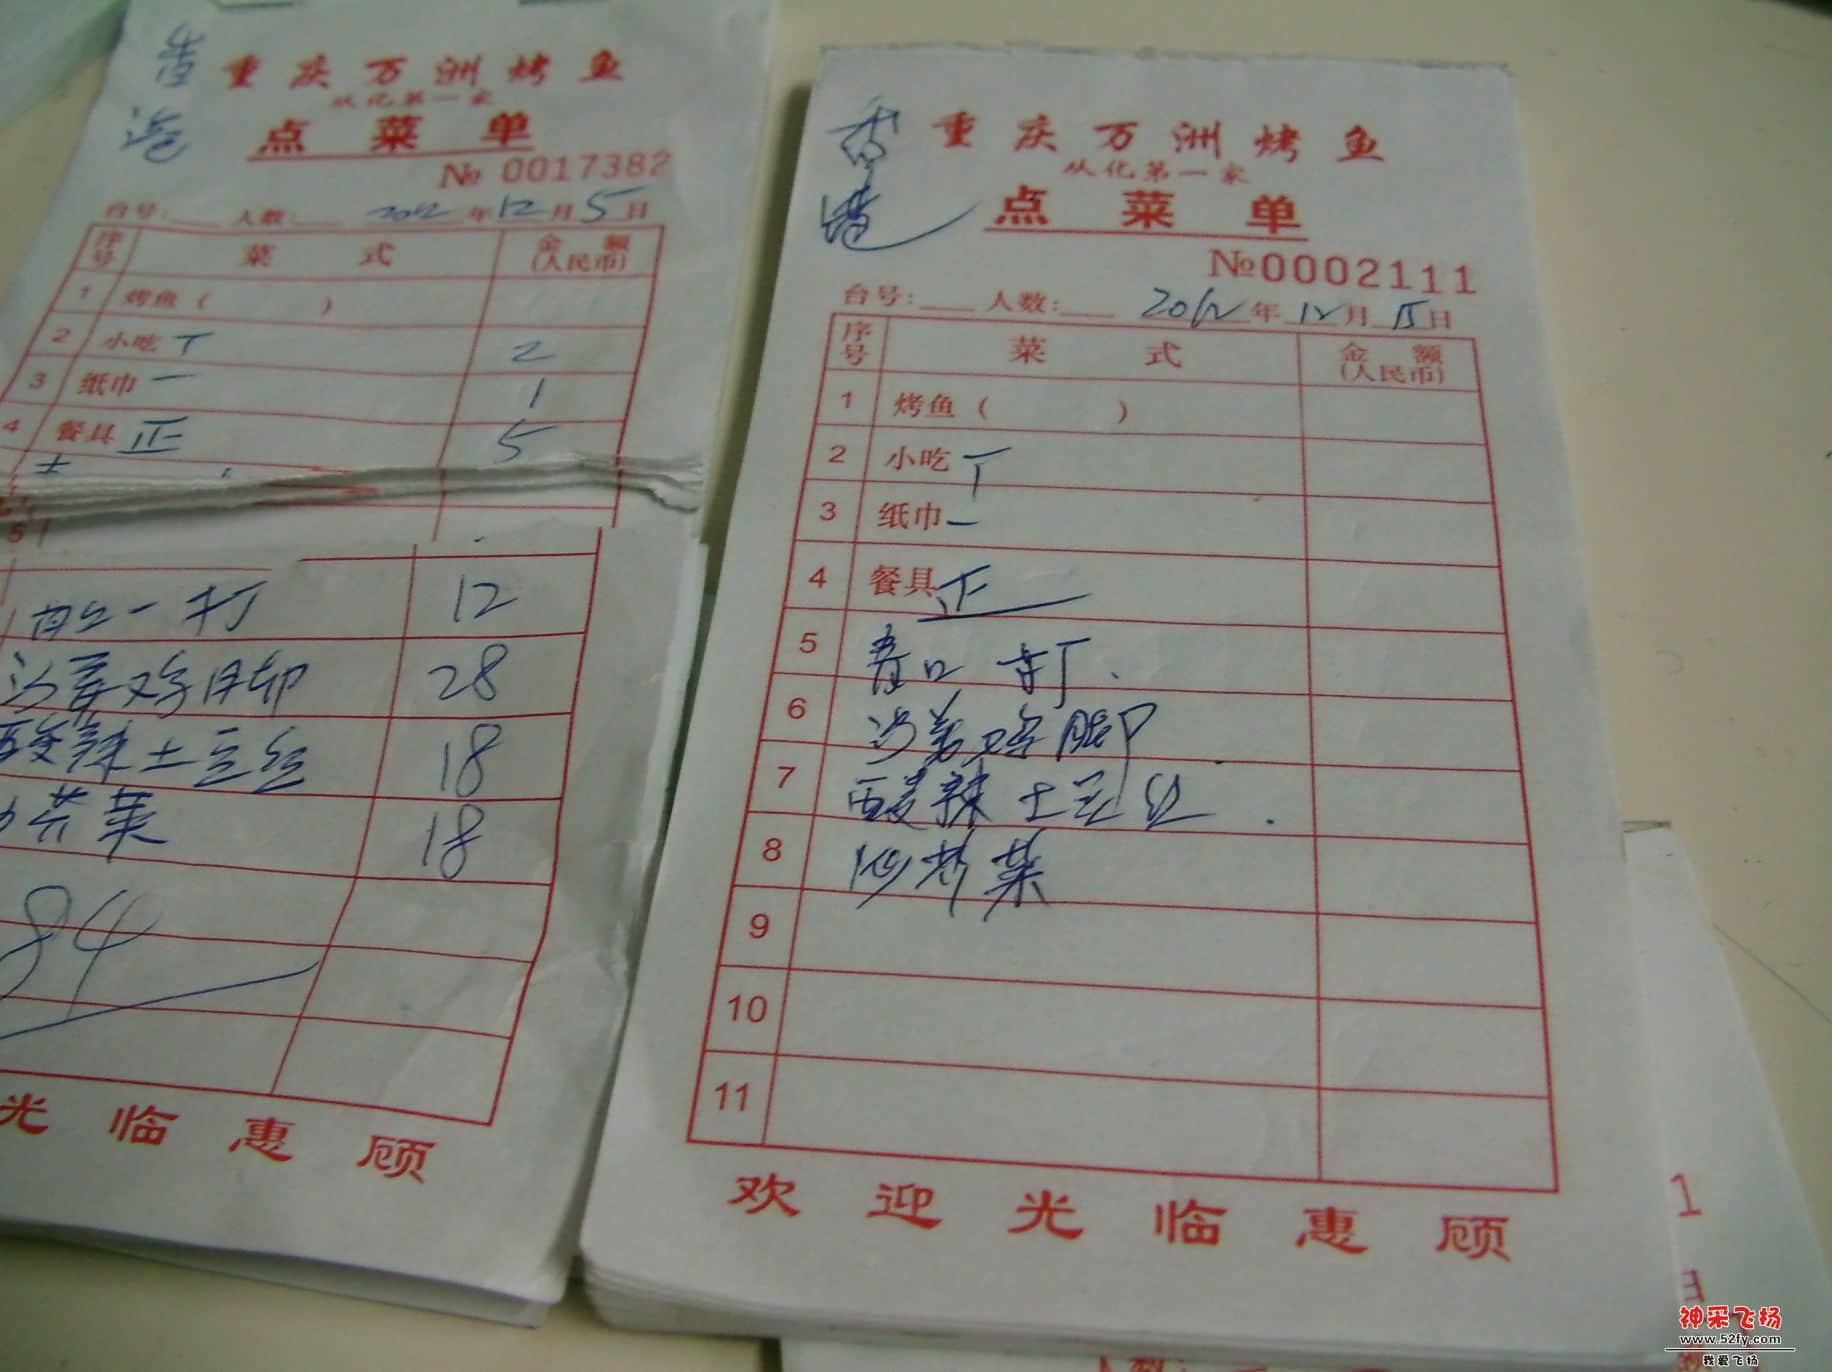 重庆万洲烤鱼
从化第一家
点菜单
№ 0017382
台号: 人数: 2012年12月5日
序号 菜式 金额(人民币)
1 烤鱼 ( )
2 小吃 丅 2
3 纸巾 一 1
4 餐具 正 5
5
一打 12
鸡脚 28
酸辣土豆丝 18
芥菜 18
84
光临惠顾
香港
重庆万洲烤鱼
从化第一家
点菜单
№0002111
台号: 人数: 2012年12月 日
序号 菜式 金额(人民币)
1 烤鱼 ( )
2 小吃 丅
3 纸巾 一
4 餐具 正
5 青口 打
6 鸡脚
7 酸辣土豆丝
8 芥菜
9
10
11
欢迎光临惠顾
1
神采飞扬
www.52fy.com
我爱飞扬